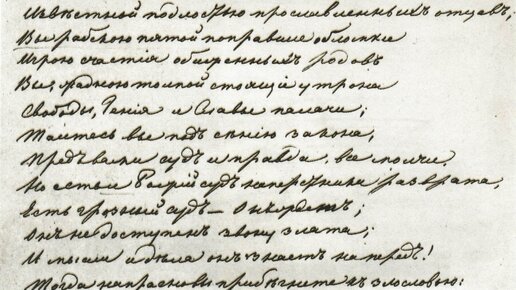 Извѣстной подлостью прославленныхъ отцовъ,
Вы рабскою пятой поправшіе обломки
Игрою счастія обиженныхъ родовъ
Вы, жадною толпой стоящіе у трона
Свободы, Генія и Славы палачи;
Таитесь вы подъ сѣнію закона,
Предъ вами судъ и правда, все молчи.
Но есть и Божій судъ наперсники разврата,
Есть грозный судъ —
Онъ не доступенъ звону злата;
И мысли и дѣла онъ знаетъ напередъ!
Тогда напрасно вы прибѣгнете къ злословью: